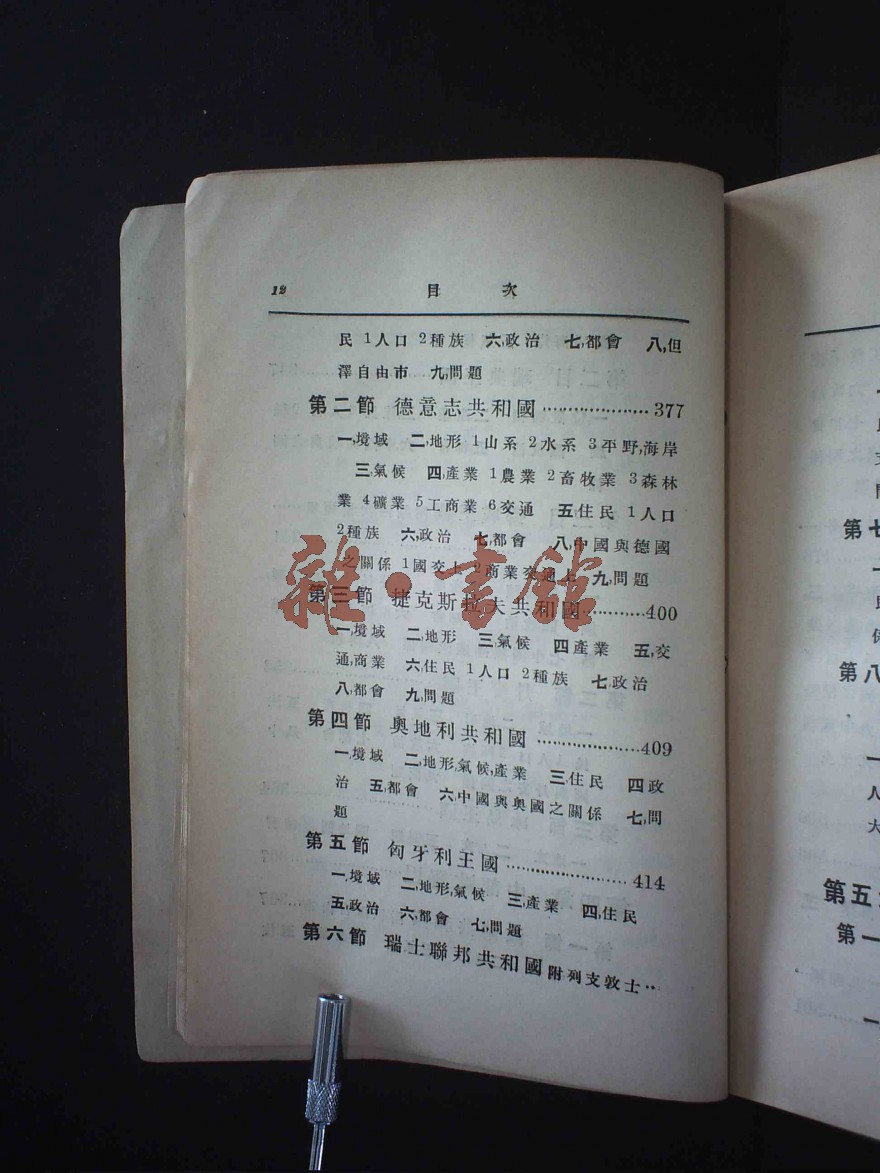 12 目 次
民 1人口 2種族 六,政治 七,都會 八,但
澤自由市 九,問題
第二節 德意志共和國··················377
一,境域 二,地形 1山系 2水系 3平野,海岸
三,氣候 四,產業 1農業 2畜牧業 3森林
業 4礦業 5工商業 6交通 五,住民 1人口
2種族 六,政治 七,都會 八,中國與德國
之關係 1國交上 2商業交通上 九,問題
雜·書館
第三節 捷克斯拉夫共和國···········400
一,境域 二,地形 三,氣候 四,產業 五,交
通,商業 六,住民 1人口 2種族 七,政治
八,都會 九,問題
第四節 奧地利共和國··················409
一,境域 二,地形,氣候,產業 三,住民 四,政
治 五,都會 六,中國與奧國之關係 七,問
題
第五節 匈牙利王國·····················414
一,境域 二,地形,氣候 三,產業 四,住民
五,政治 六,都會 七,問題
第六節 瑞士聯邦共和國附列支敦士··
第七
第八
一
人
大
第五
第一
一